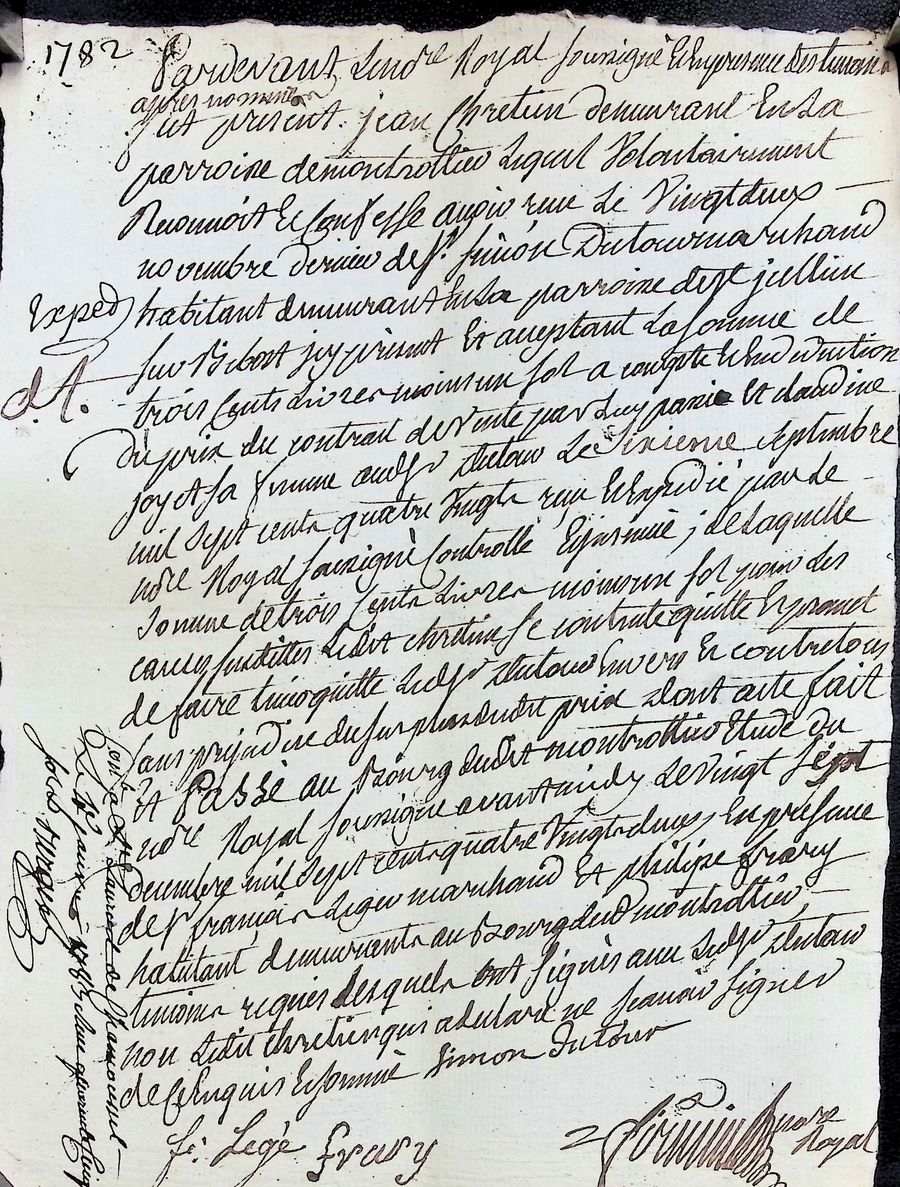 1782
Pardevant Le nore Royal soussigné Et En presence des temoins
après nommés
fut present jean Chretien demeurant En La
parroisse de montrottier Lequel Volontairement
Reconnoit Et Confesse avoir reçu Le Vingt deux
novembre dernier de Sr. Simon Dutour marchand
habitant demeurant En La parroisse de St jullien
sur Bibost icy present Et acceptant La somme de
trois Cents Livres moins un sol a compte Et En deduction
Du prix du contrat de Vente par Luy passé Et claudine
joy Et sa femme audsr Dutour Le Sixieme Septembre
mil Sept cents quatre Vingts reçu Et Expedié par Le
nore Royal soussigné Controllé Et ; de Laquelle
somme de trois Cents Livres moins un sol pour Les
causes susdittes Ledit chretien se contente quitte Et promet
de faire tenir quitte Ledsr Dutour Envers Et contre tous
sans prejudice du surplus dudit prix dont acte fait
Et Passé au Bourg dudit montrottier Etude du
nore Royal soussigné avant midy Le Vingt Sept
Decembre mil Sept cents quatre Vingts deux, En presence
de Sr françois Leger marchand Et philipe frary
habitant demeurants au Bourg dud montrottier,
temoins requis Lesquels ont Signés avec Ledsr Dutour
non Ledit chretien qui a declaré ne sçavoir signer
de ce Enquis Et sommé Simon Dutour
fs: Legé frary
nore
Royal
Exped
d. A.
Con. à St Laurent de Chamousset
Le 1783